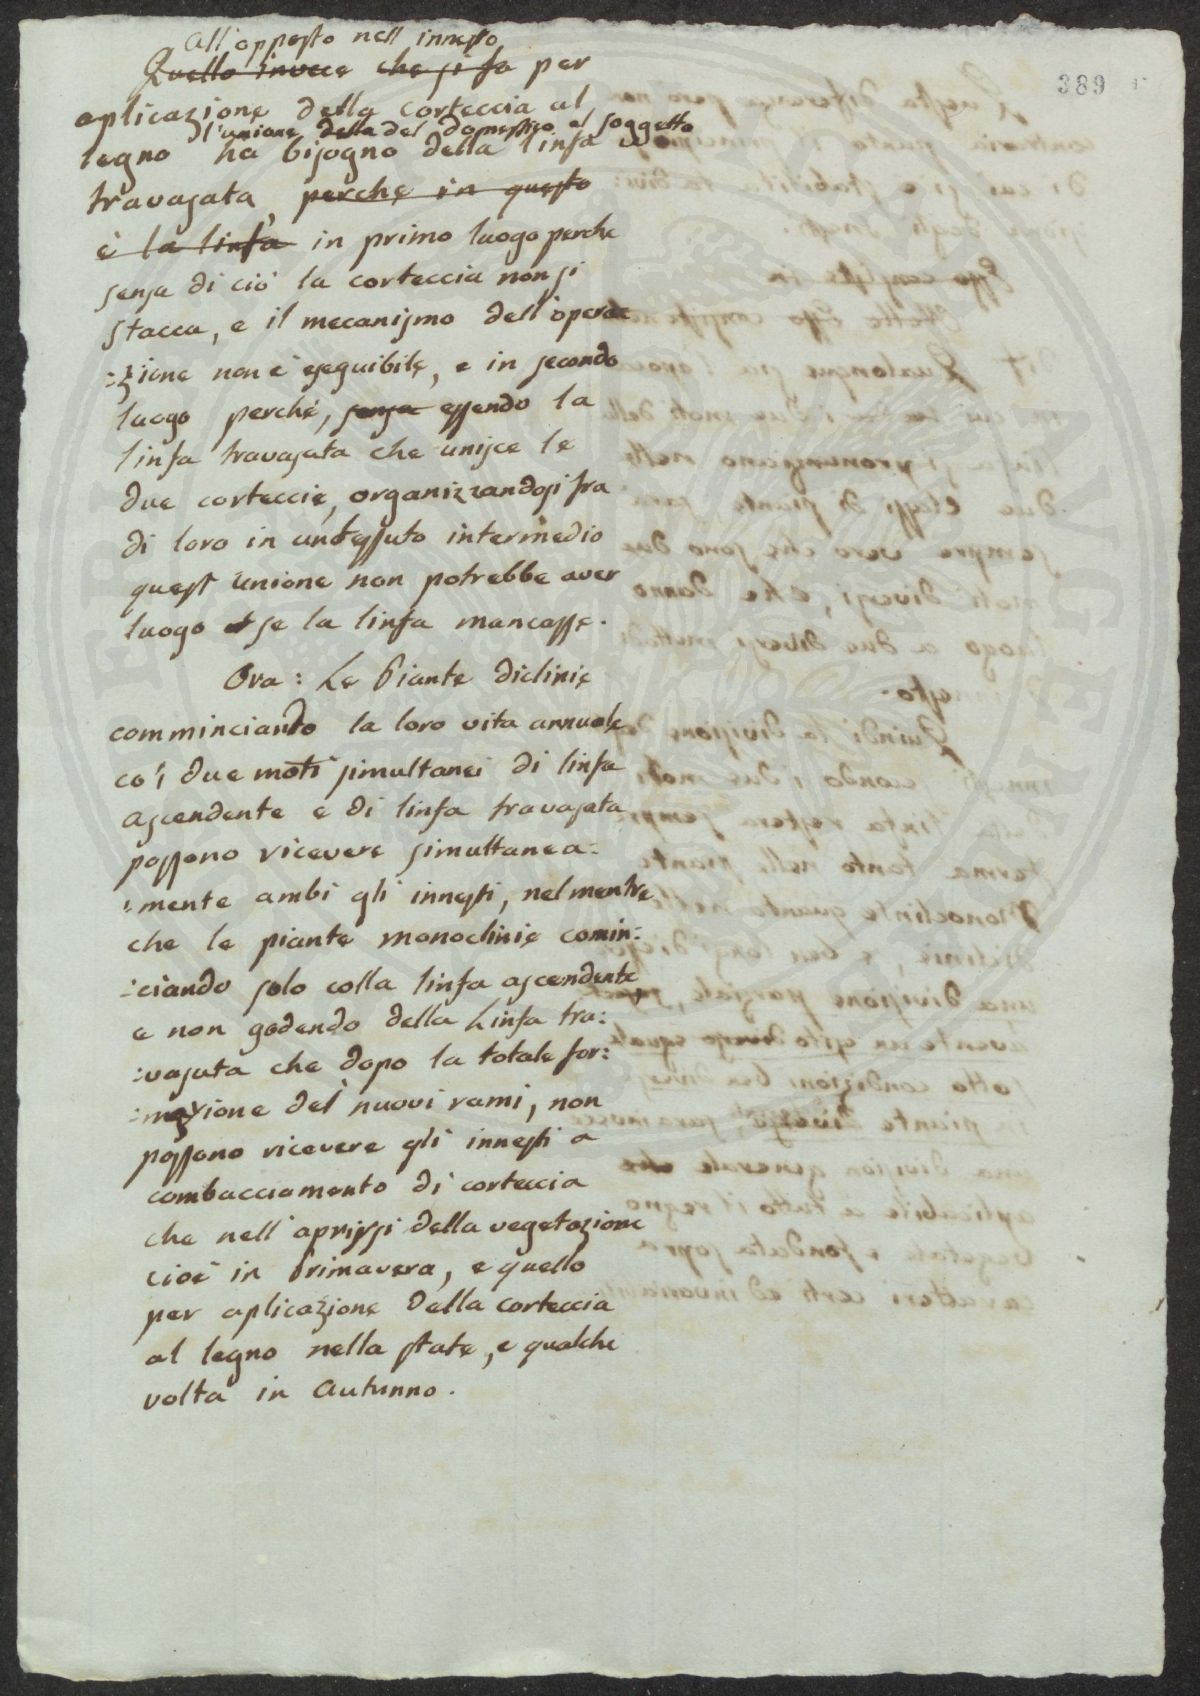 389
all'opposto nell'innesto
Quello invece che si fa per
aplicazione della corteccia al
l'unione della del domestico al soggetto
legno ha bisogno della linfa
travasata, perchè in questo
è la linfa in primo luogo perche
senza di ciò la corteccia non si
stacca, e il mecanismo dell'opera:
:zione non è eseguibile, e in secondo
luogo perchè, senza essendo la
linfa travasata che unisce le
due corteccie, organizzandosi fra
di loro in un tessuto intermedio
quest'unione non potrebbe aver
luogo se la linfa mancasse.
Ora: Le Piante diclinie
comminciando la loro vita annuale
co'i due moti simultanei di linfa
ascendente e di linfa travasata
possono ricevere simultanea:
:mente ambi gli innesti, nel mentre
che le piante monoclinie comin:
:ciando solo colla linfa ascendente
e non godendo della Linfa tra:
:vasata che dopo la totale for:
:mazione dei nuovi rami, non
possono ricevere gli innesti a
combacciamento di corteccia
che nell'aprirsi della vegetazione
cioè in Primavera, e quello
per aplicazione della corteccia
al legno nella state, e qualche
volta in Autunno.